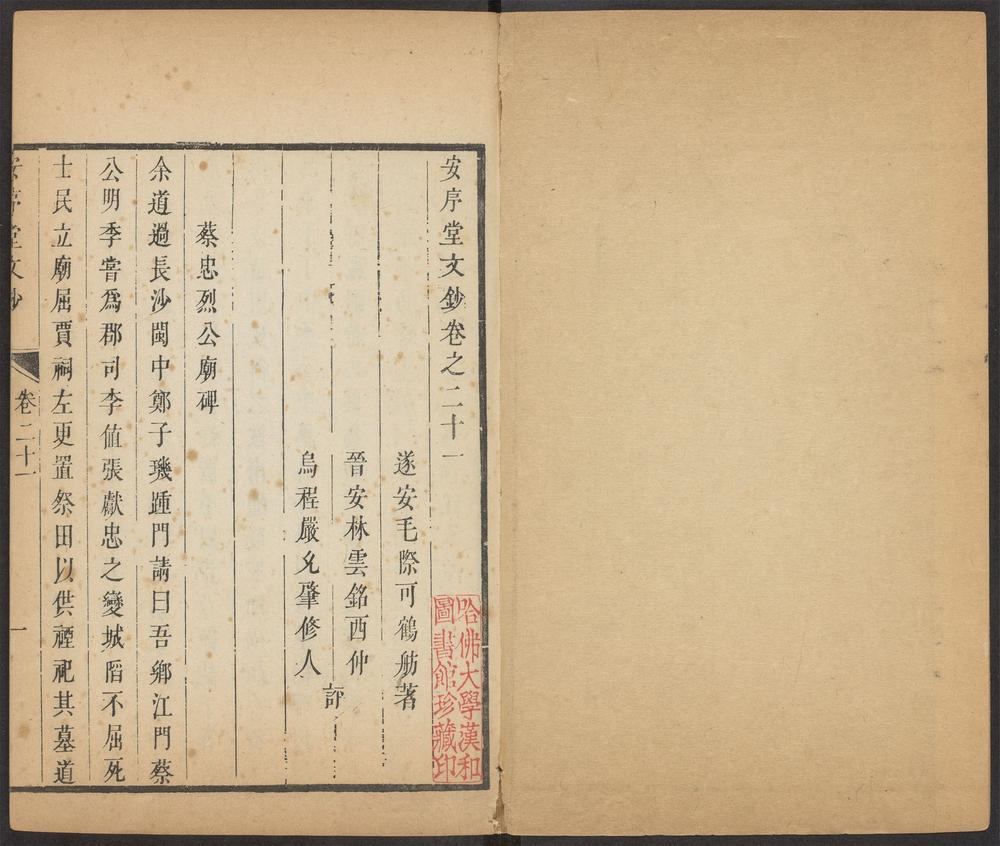 安序堂文鈔卷之二十一
遂安毛際可鶴舫著
晉安林雲銘西仲
烏程嚴允肇修人
評
蔡忠烈公廟碑
余道過長沙閩中鄭子璣踵門請曰吾鄉江門蔡
公明季嘗爲郡司李値張獻忠之變城陷不屈死
士民立廟屈賈祠左更置祭田以供禋祀其墓道
安序堂文鈔
卷二十一
一
哈佛大學漢和
圖書館珍藏印